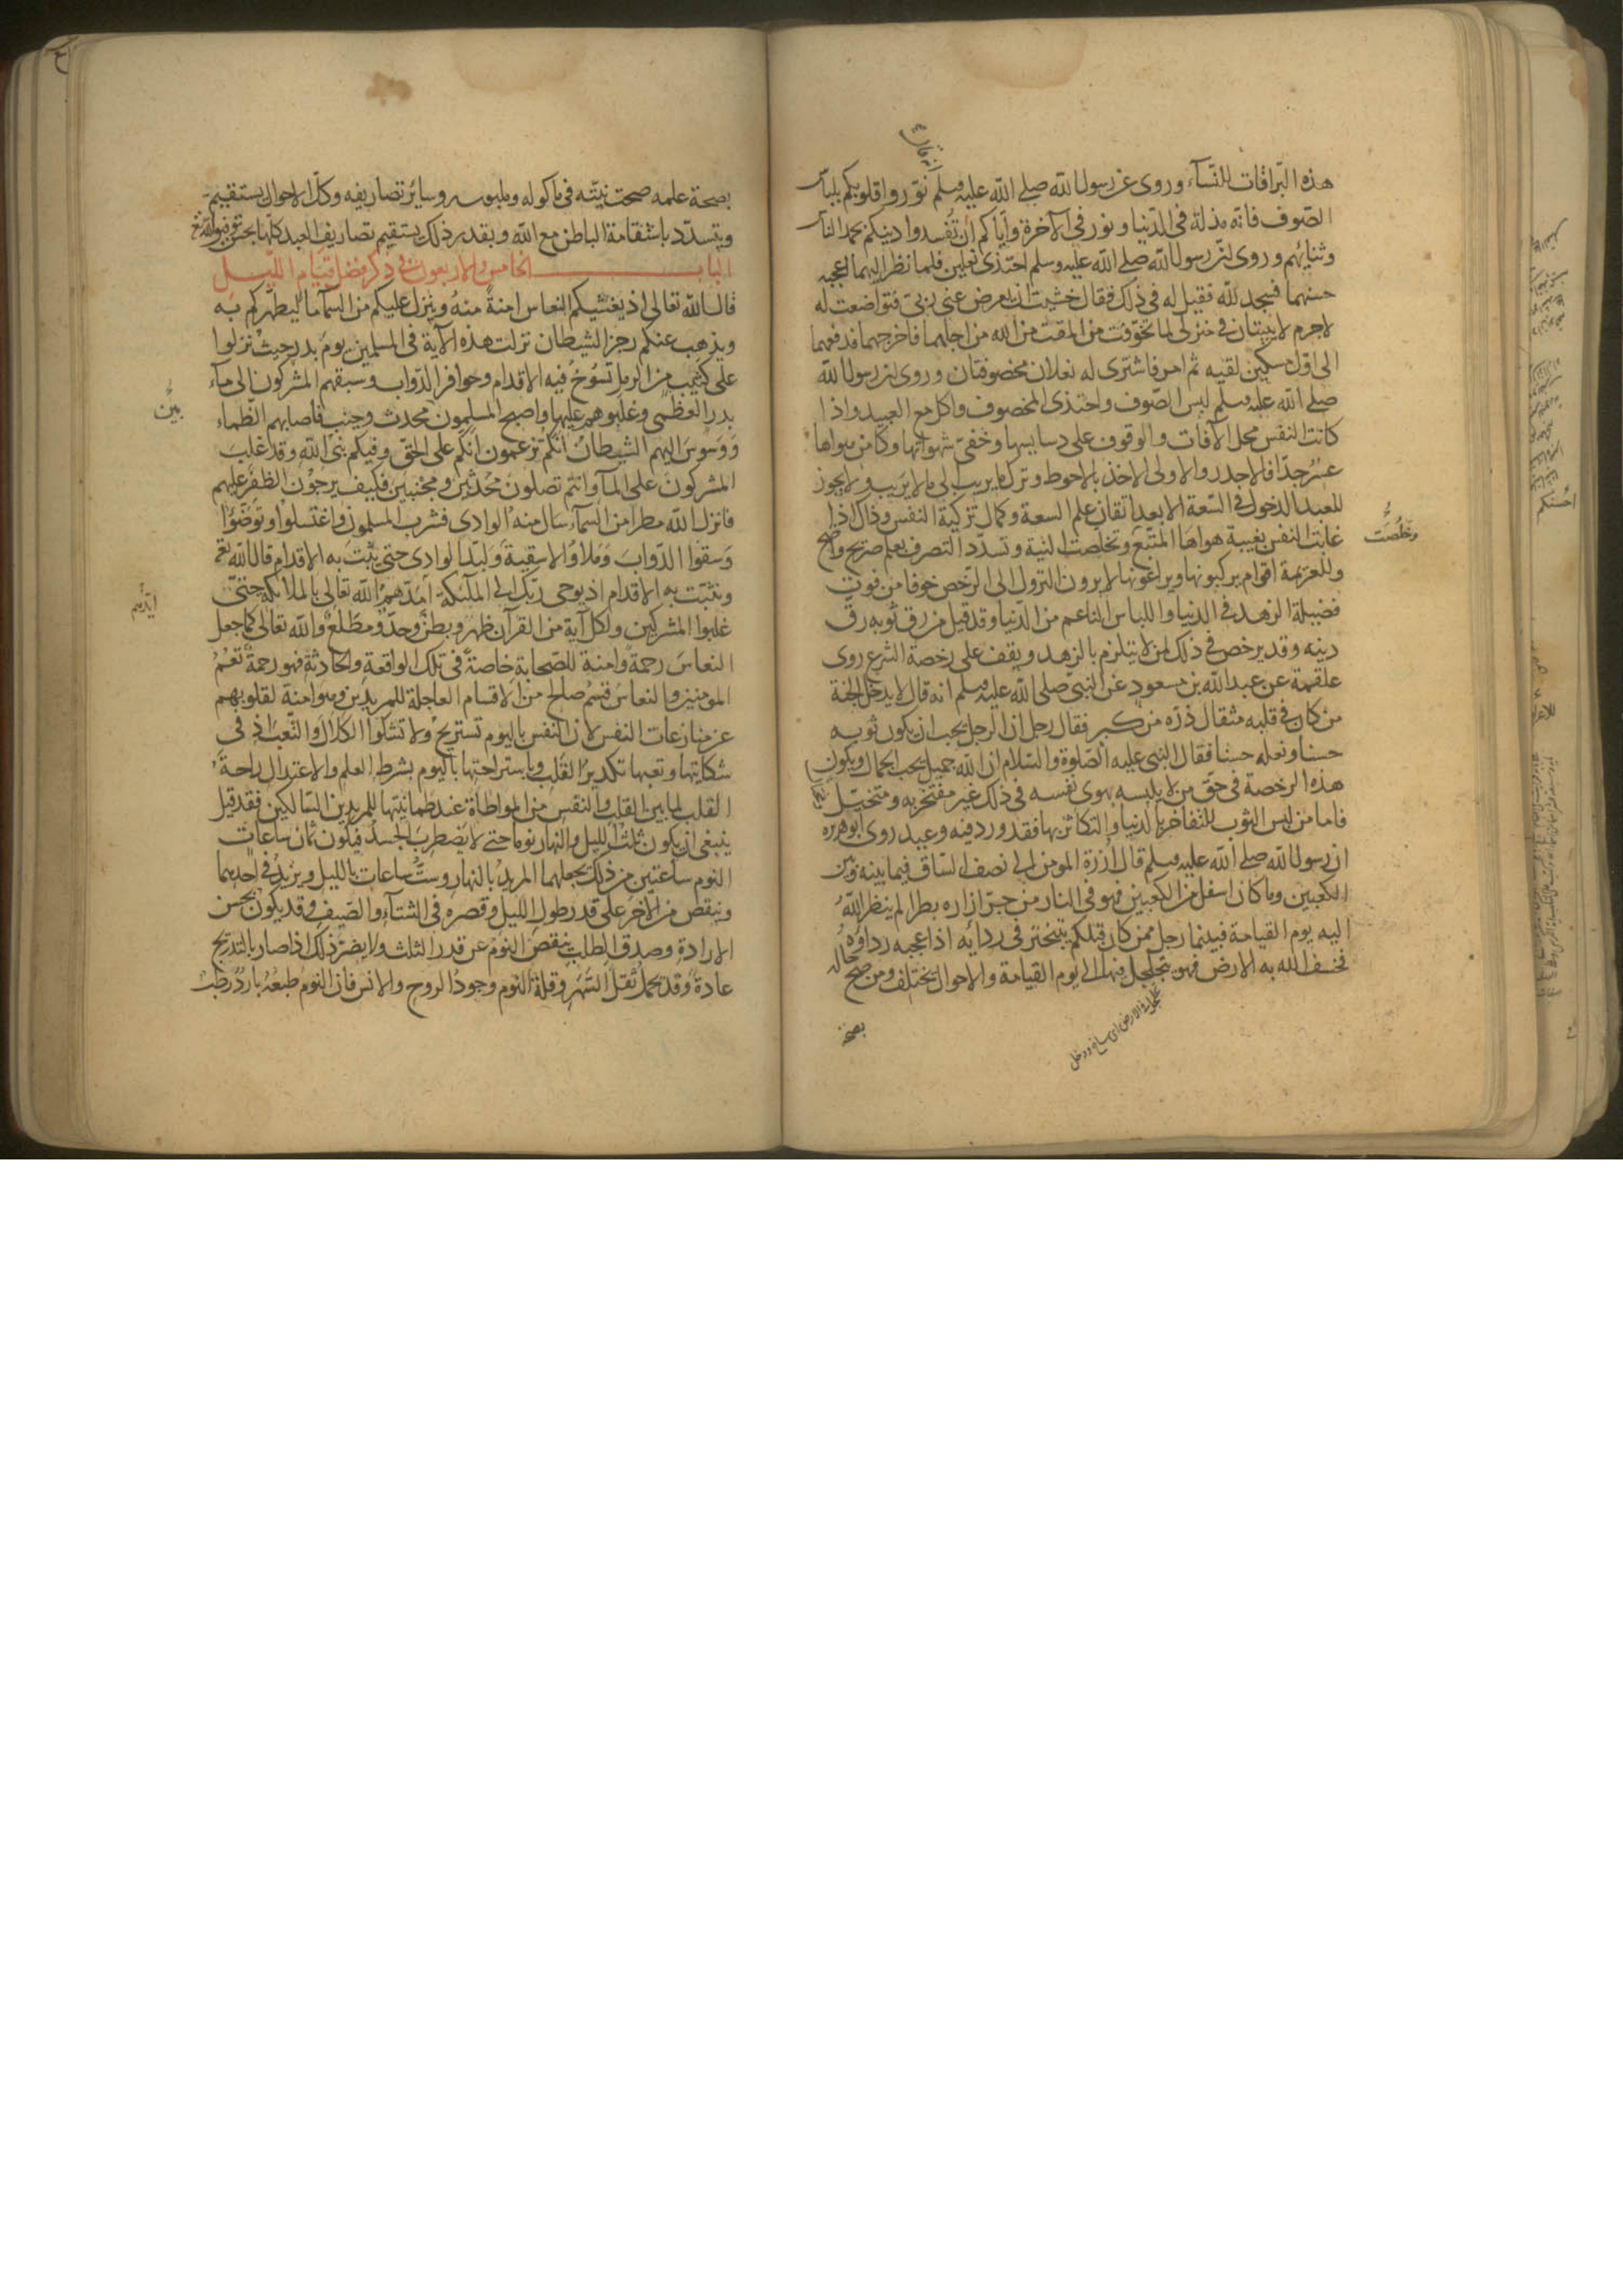 هذه البراقات للنسآء وروى عن رسول الله صلى الله عليه وسلم نوروا قلوبكم بلباس
الصوف فانه مذلة في الدنيا ونور في الآخرة واياكم ان تفسدوا دينكم بحمد الناس
وثنائهم وروى ان رسول الله صلى الله عليه وسلم احتذى نعلين فلما نظر اليهما اعجبه
حسنهما فسجد لله فقيل له في ذلك فقال خشيت ان يعرض عني ربي فتواضعت له
لاجرم لا يبيتان في منزلي لما تخوفت من المقت من الله من اجلهما فاخرجهما فدفعهما
الى اول مسكين لقيه ثم امر فاشترى له نعلان مخصوفتان وروى ان رسول الله
صلى الله عليه وسلم لبس الصوف واحتذى المخصوف واكل مع العبيد واذا
كانت النفس محل الآفات والوقوف على دسايسها وخفي شهواتها وكامن هواها
عسر جدا فالاجدر والاولى الاخذ بالاحوط وترك ما يريب الى ما لا يريب ولا يجوز
للعبد الدخول في السعة الا بعد اتقان علم السعة وكمال تزكية النفس وذاك اذا
غابت النفس بغيبة هواها المتبع وتخلصت النية وتسدد التصرف بعلم صريح واضح
وخلصت
وللعزيمة اقوام يركبونها ويراعونها لا يرون النزول الى الرخص خوفا من فوت
فضيلة الزهد في الدنيا واللباس الناعم من الدنيا وقد قيل من رق ثوبه رق
دينه وقد يرخص في ذلك لمن لا يلتزم بالزهد ويقف على رخصة الشرع روى
علقمة عن عبد الله بن مسعود عن النبي صلى الله عليه وسلم انه قال لا يدخل الجنة
من كان في قلبه مثقال ذرة من كبر فقال رجل ان الرجل يحب ان يكون ثوبه
حسنا ونعله حسنا فقال النبي عليه الصلوة والسلام ان الله جميل يحب الجمال ويكون
هذه الرخصة في حق من لا يلبسه بهوى نفسه في ذلك غير مفتخر به ومتخيل
فاما من لبس الثوب للتفاخر بالدنيا والتكاثر بها فقد ورد فيه وعيد روى ابو هريره
ان رسول الله صلى الله عليه وسلم قال ازرة المؤمن الى نصف الساق فيما بينه وبين
الكعبين وما كان اسفل من الكعبين فهو في النار من جر ازاره بطرا لم ينظر الله
اليه يوم القيامة فبينما رجل ممن كان قبلكم يتبختر في ردائه اذ اعجبه رداؤه
فخسف الله به الارض فهو يتجلجل فيها الى يوم القيامة والاحوال تختلف ومن صح حاله
بصحة
بصحة علمه صحت نيته في ماكوله وملبوسه وسائر تصاريفه وكل الاحوال يستقيم
ويتسدد باستقامة الباطن مع الله وبقدر ذلك يستقيم تصاريف العبد كلها بحسن توفيق الله
الباب الخامس والاربعون في ذكر فضل قيام الليل
قال الله تعالى اذ يغشيكم النعاس امنة منه وينزل عليكم من السمآ مآ ليطهركم به
ويذهب عنكم رجز الشيطان نزلت هذه الآية في المسلمين يوم بدر حيث نزلوا
على كثيب من الرمل تسوخ فيه الاقدام وحوافر الدواب وسبقهم المشركون الى مآء
بدر العظمى وغلبوهم عليها واصبح المسلمون محدث وجنب فاصابهم الظماء
بين
ووسوس اليهم الشيطان انكم تزعمون انكم على الحق وفيكم نبي الله وقد غلب
المشركون على المآ وانتم تصلون محدثين ومجنبين فكيف يرجون الظفر عليهم
فانزل الله مطرا من السمآء سال منه الوادى فشرب المسلمون واغتسلوا وتوضؤا
وسقوا الدواب وملاؤا الاسقية ولبد الوادى حتى يثبت به الاقدام قال الله تع
ويثبت به الاقدام اذ يوحي ربك الى الملئكة امدهم الله تعالى بالملائكة حتى
ايدهم
غلبوا المشركين ولكل آية من القرآن ظهر وبطن وحد ومطلع والله تعالى كما جعل
النعاس رحمة وامنة للصحابة خاصة في تلك الواقعة والحادثة فهو رحمة تعم
المومنين والنعاس قسم صالح من الاقسام العاجلة للمريدين وهو امنة لقلوبهم
عن منازعات النفس لان النفس بالنوم تستريح ولا تشكوا الكلال والتعب اذ في
شكايتها وتعبها تكدير القلب وباستراحتها بالنوم بشرط العلم والاعتدال راحة
القلب لما بين القلب والنفس من المواطاة عند طمانيتها للمريدين السالكين فقد قيل
ينبغى ان يكون ثلث الليل والنهار نوما حتى لا يضطرب الجسد فيكون ثمان ساعات
النوم ساعتين من ذلك يجعلهما المريد بالنهار وست ساعات بالليل ويزيد في احديهما
وينقص من الآخر على قدر طول الليل وقصره في الشتآء والصيف وقد يكون بحسن
الارادة وصدق الطلب ينقص النوم عن قدر الثلث ولا يضر ذلك اذا صار بالتدريج
عادة وقد يحمل ثقل السهر وقلة النوم وجود الروح والانس فان النوم طبعه بارد رطب